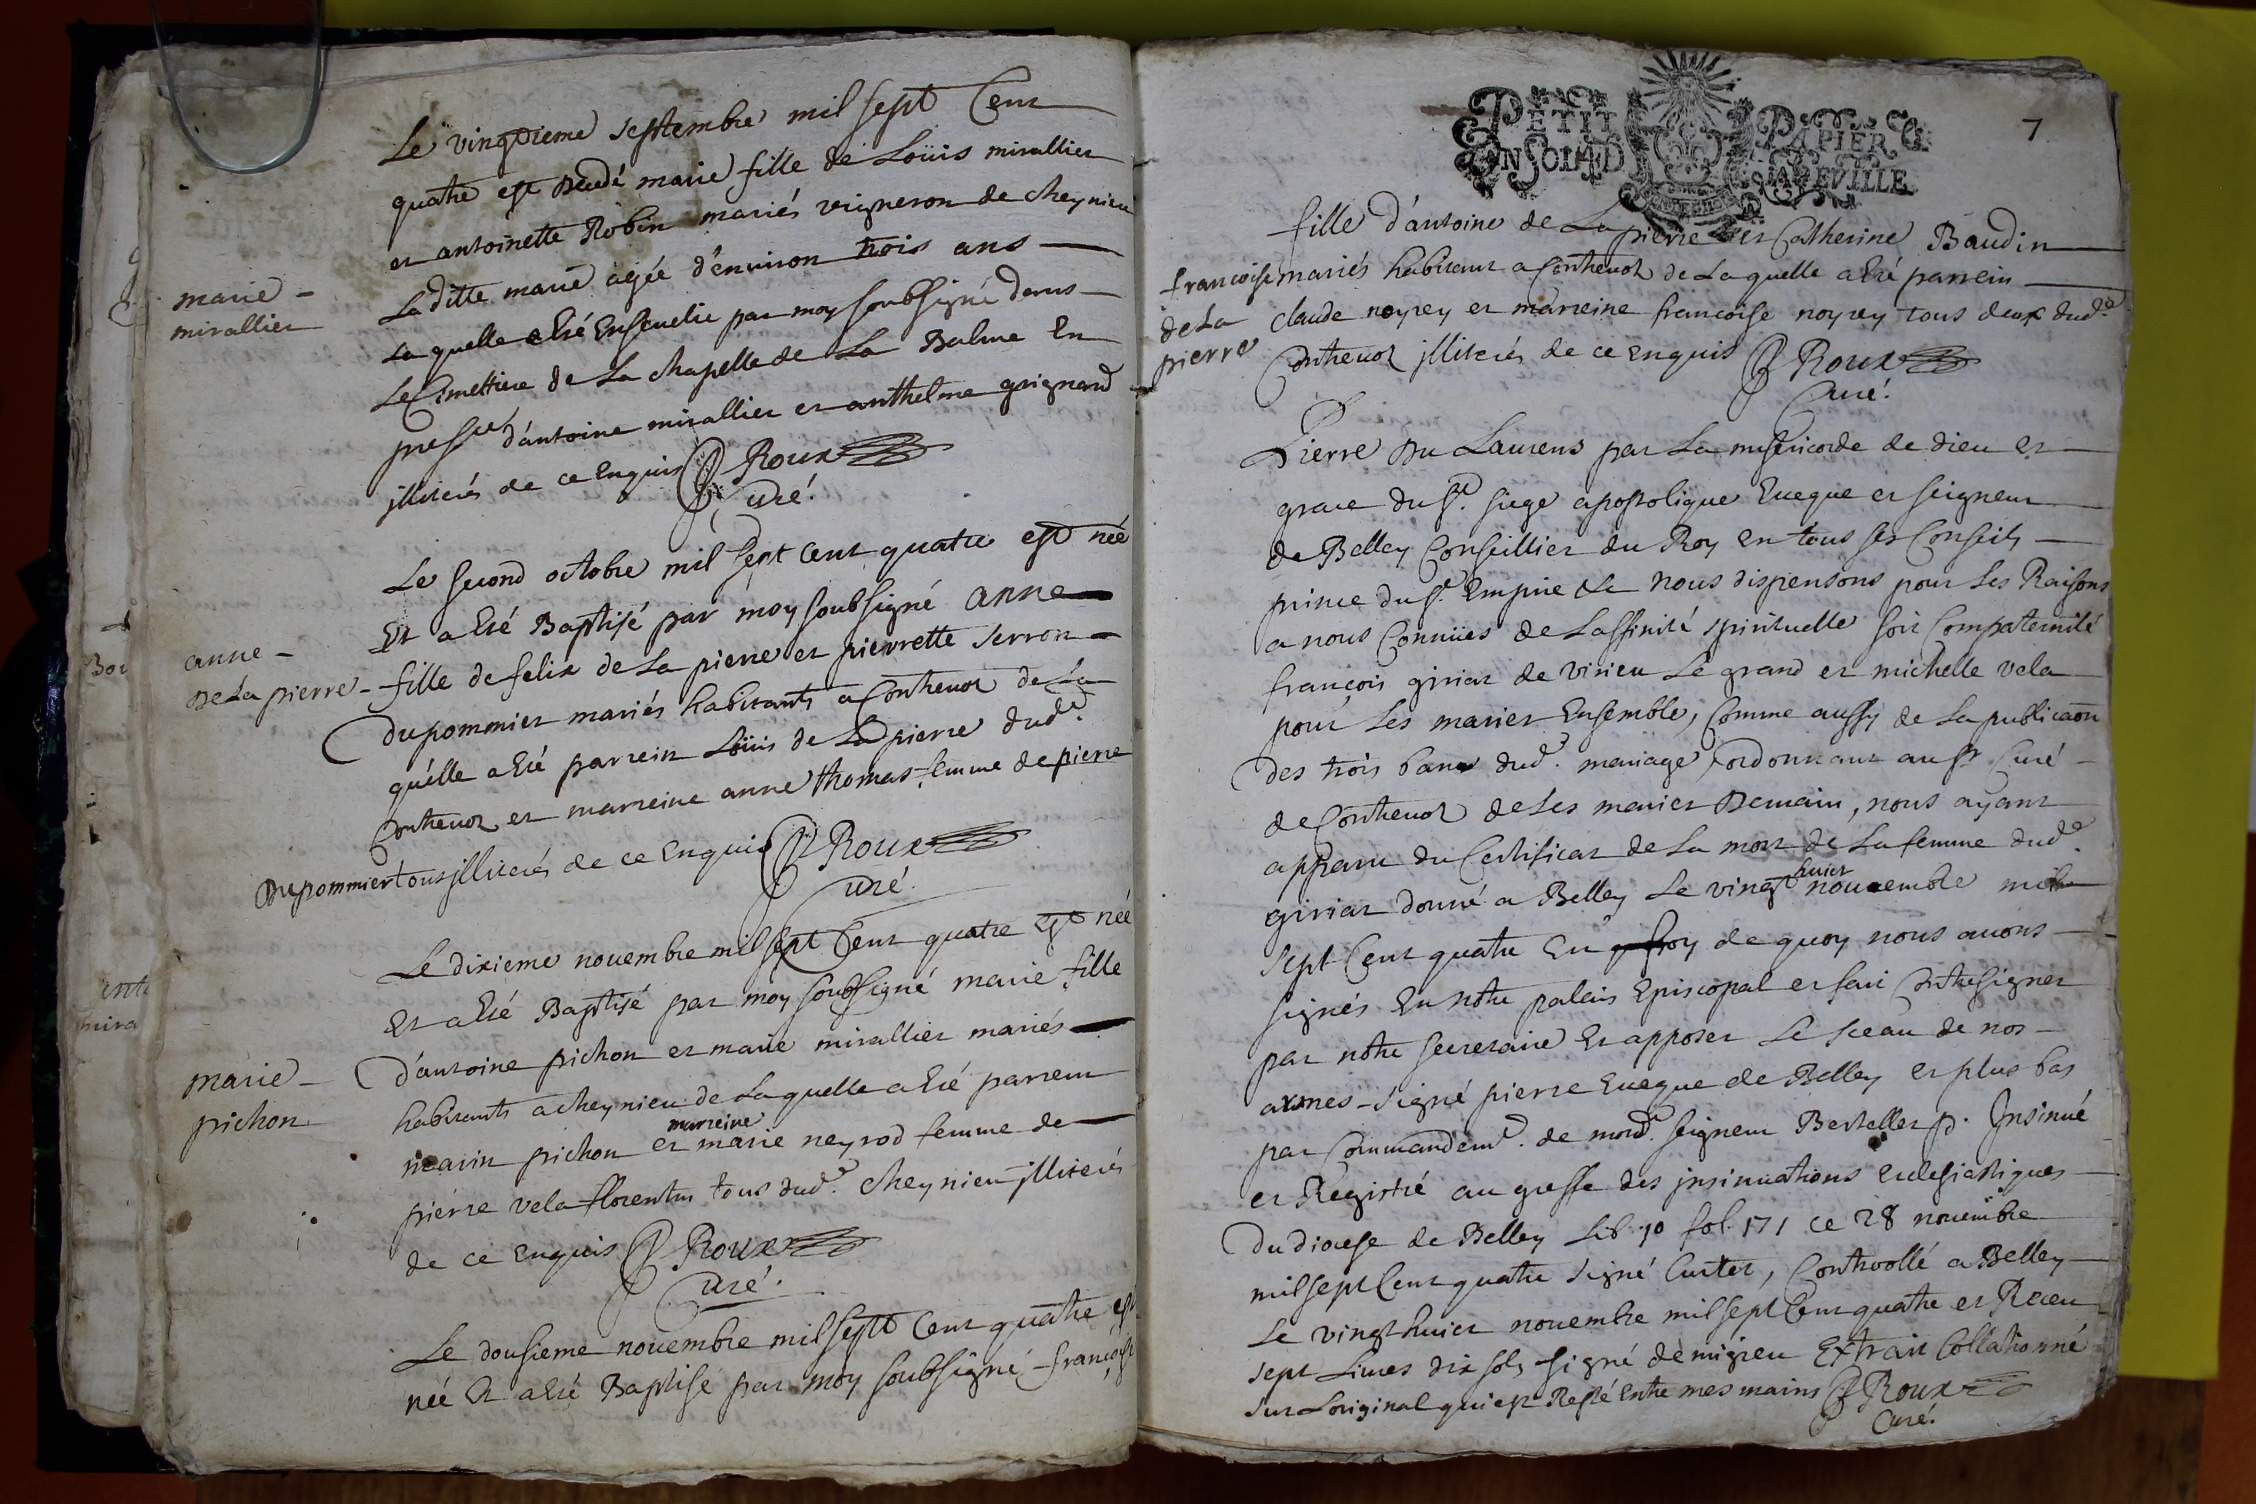 Le vingtieme septembre mil sept Cent
quatre est decedé marie fille de Loüis mirallier
et antoinette Robin mariés vigneron de cheynieu
Laditte marie agée d'environ trois ans
marie
mirallier
La quelle a eté Ensevelie par moy soubsigné dans
Le Cimettiere de La chapelle de La Balme En
presce d'antoine mirallier et anthelme grignand
jlliterés de ce Enquis Roux
Curé.
Le second octobre mil sept cent quatre est née
Et a eté Baptisé par moy soubsigné anne
anne
De La pierre
fille de felix de La pierre et pierrette serron
dupommier mariés habitants a Contrevoz de La
quelle a eté parrein Loüis de La pierre dudt.
Contrevoz et marreine anne thomas femme de pierre
Dupommier tous jlliterés de ce Enquis Roux
Curé.
Le dixieme novembre mil sept Cent quatre est née
Et a eté Baptisé par moy soubsigné marie fille
marie
pichon
d'antoine pichon et marie mirallier mariés
habitants a cheynieu de La quelle a eté parrein
marin pichon et marreine marie neyrod femme de
pierre vela florentin tous dudt. cheynieu jlliterés
de ce Enquis Roux
Curé.
Le dousieme novembre mil sept Cent quatre est
née Et a eté Baptisé par moy soubsigné françoise
PETIT PAPIER
7
fille d'antoine de La pierre et Catherine Baudin
francoise
de La
pierre
mariés habitant a Contrevoz de La quelle a eté parrein
claude noyrey et marreine francoise noyrey tous deux dudt.
Contrevoz jlliterés de ce Enquis Roux
Curé.
Pierre Du Laurens par La misericorde de dieu et
grace du st. siege apostolique Eveque et seigneur
de Belley Conseillier du Roy en tous ses Conseils
prince du st. Empire &c nous dispensons pour Les Raisons
a nous Connües de Laffinité spirituelle soit Compaternité
françois giriat de virieu Le grand et michelle vela
pour Les marier Ensemble, Comme aussy de La publicaon
des trois bans dudt. mariage ordonnant au sr Curé
de Contrevoz de Les marier Demain, nous ayant
apparu du Certificat de La mort de La femme dudt.
giriat donné a Belley Le vingt huict novembre mil
sept Cent quatre En foy de quoy nous avons
signés En notre palais Episcopal et fait Contresigner
par notre secretaire Et apposer Le sceau de nos
armes signé pierre Eveque de Belley et plus bas
par Commandemt. de mondt. seigneur Berteller p. Insinué
et Registré au greffe des jnsinuations ecclesiastiques
Du diocese de Belley Lib. 10 fol. 171 ce 28 novembre
mil sept Cent quatre signé Curtet, Controollé a Belley
Le vingt huict novembre mil sept Cent quatre et Receu
sept Livres dix sols signé demigieu Extrait Collationné
sur Loriginal qui est Resté Entre mes mains Roux
Curé.